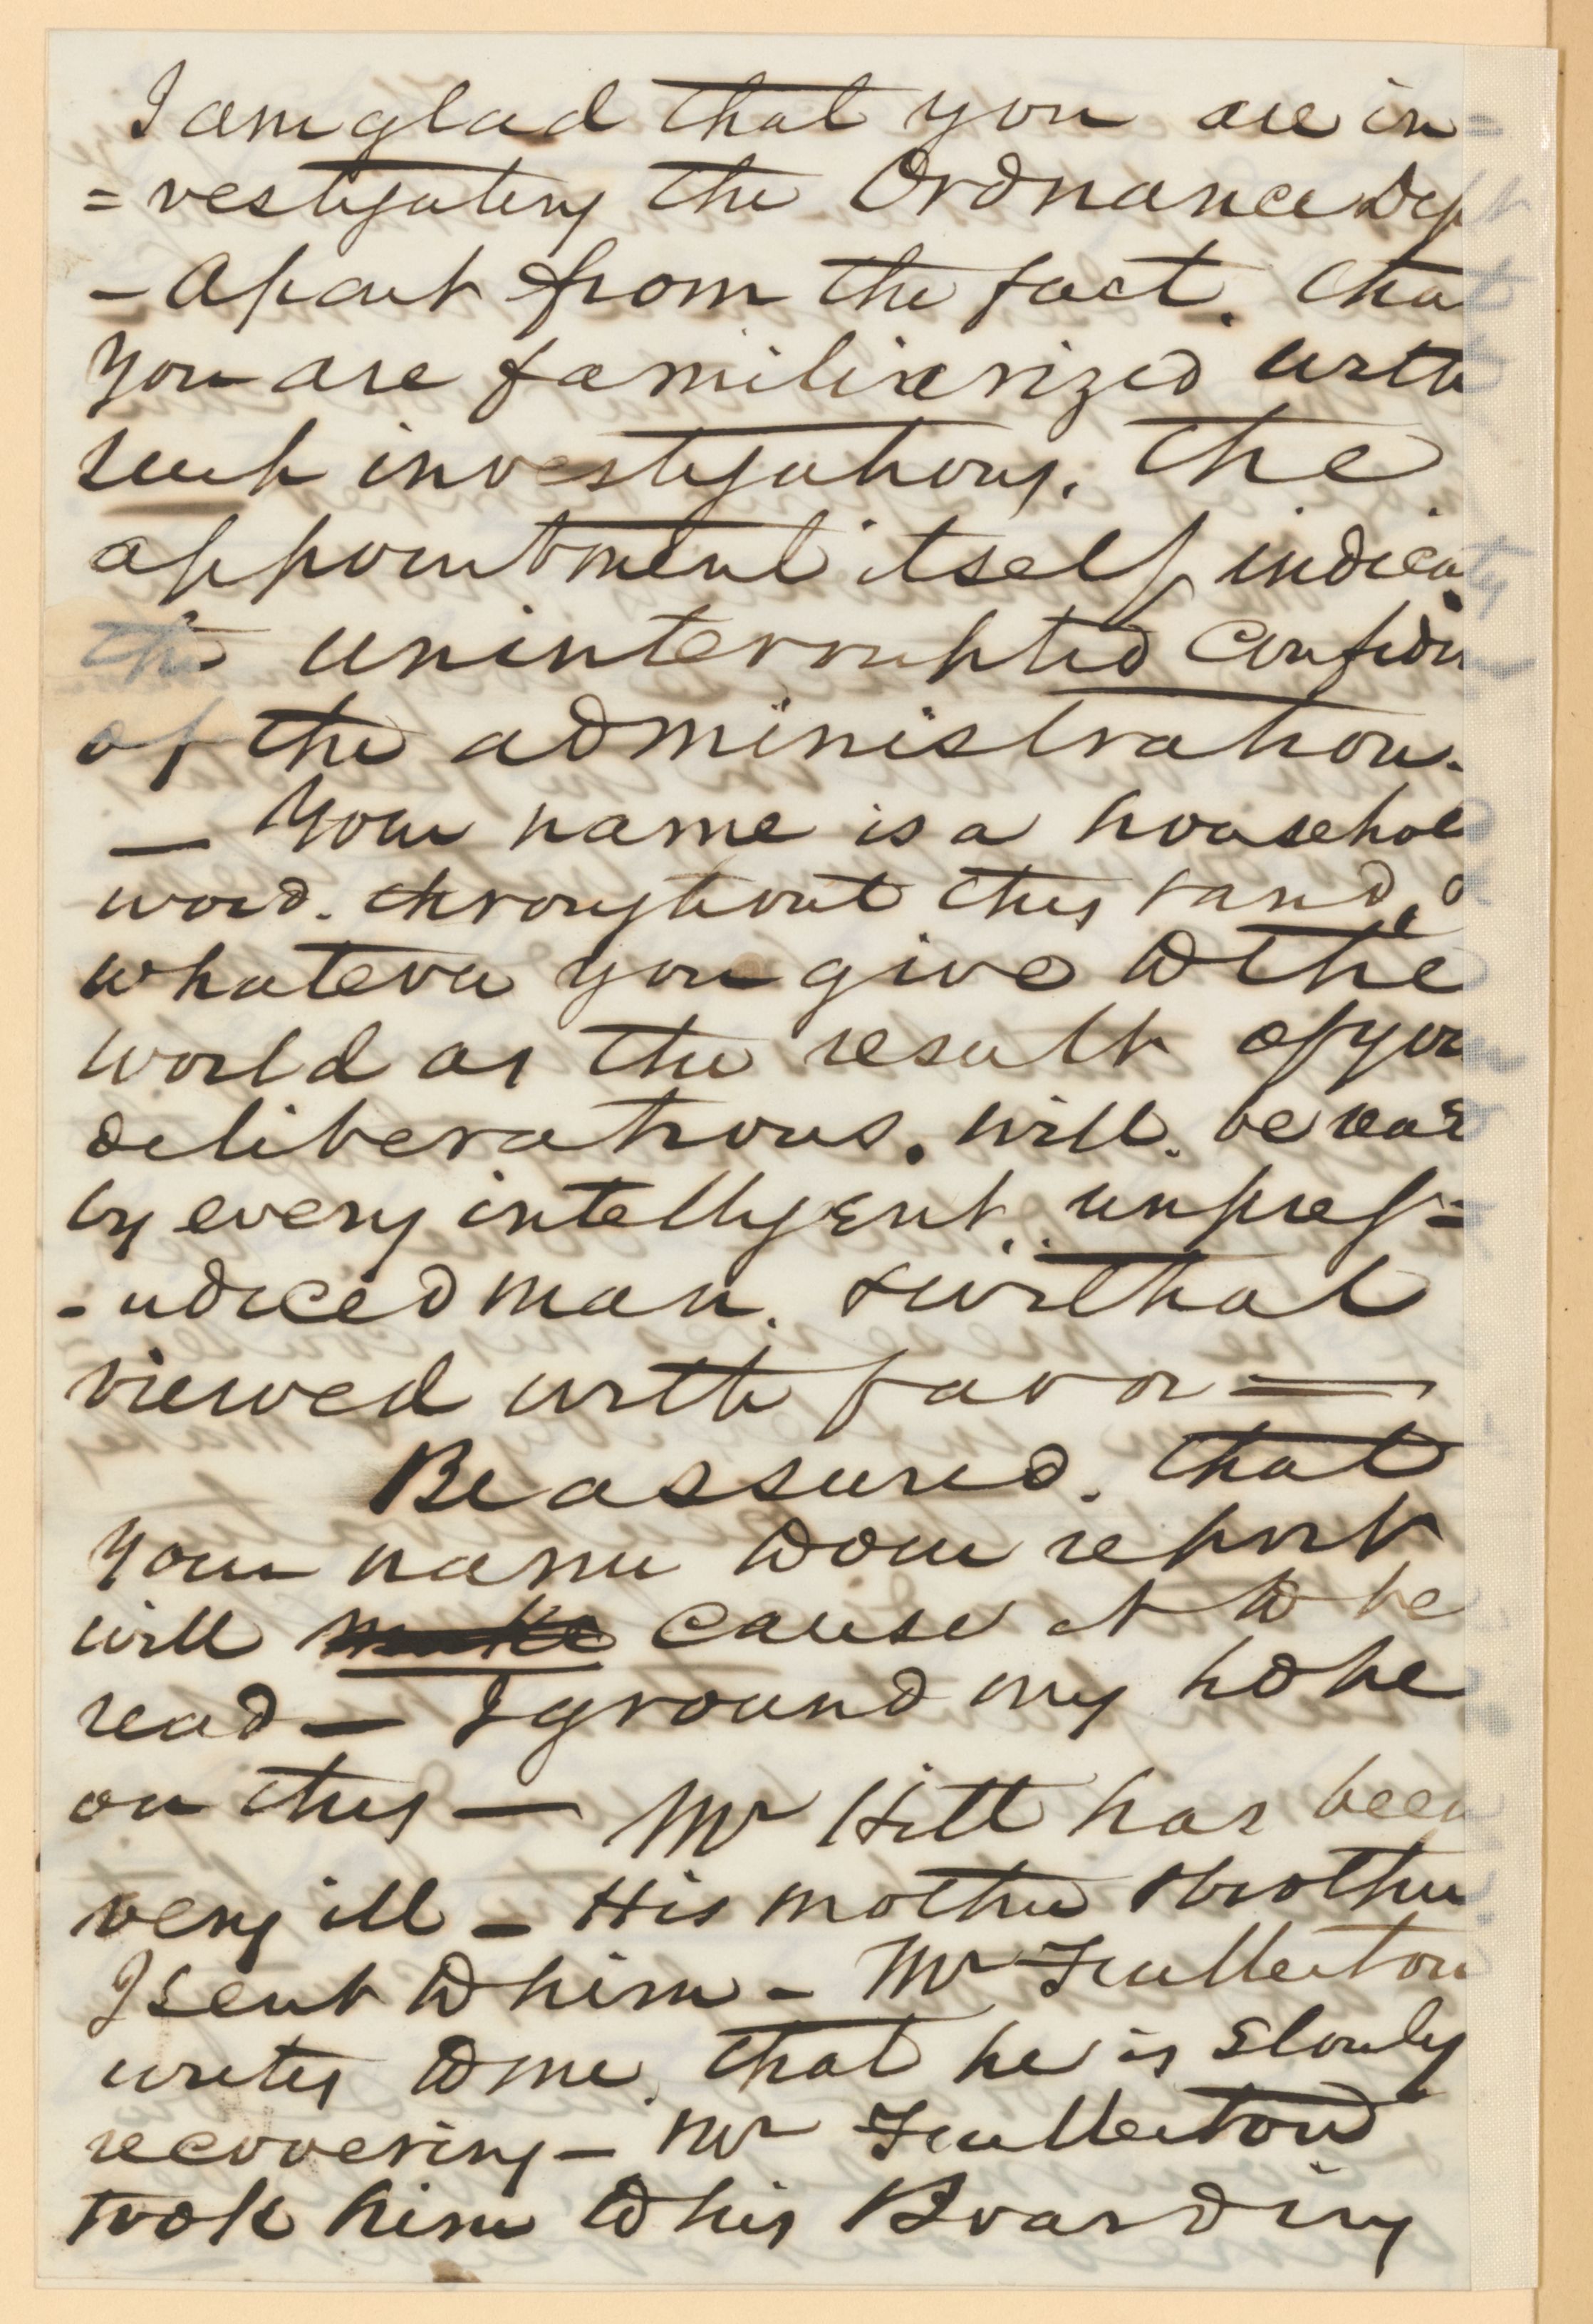 I am glad that you are in=
=vestigating the Ordnance Dept
- Apart from the fact. that
you are familiarized with
such investigations. The
appointment itself, indicates
the uninterrupted confiden
of the administration.
— Your name is a household
word. throughout this land, &
whatever you give to the
world as the result of your
deliberations. will. be read
by every intelligent.. unprej=
- udiced man. & withal
viewed with favor =
Be assured. that
your name to our report
will make cause it to be
read — I ground my hope
on this — Mr Hitt has been
very ill - His mother & brother
I sent to him - Mr Fullerton
writes to me. that he is slowly
recovering - Mr Fullerton
took him to his Boarding